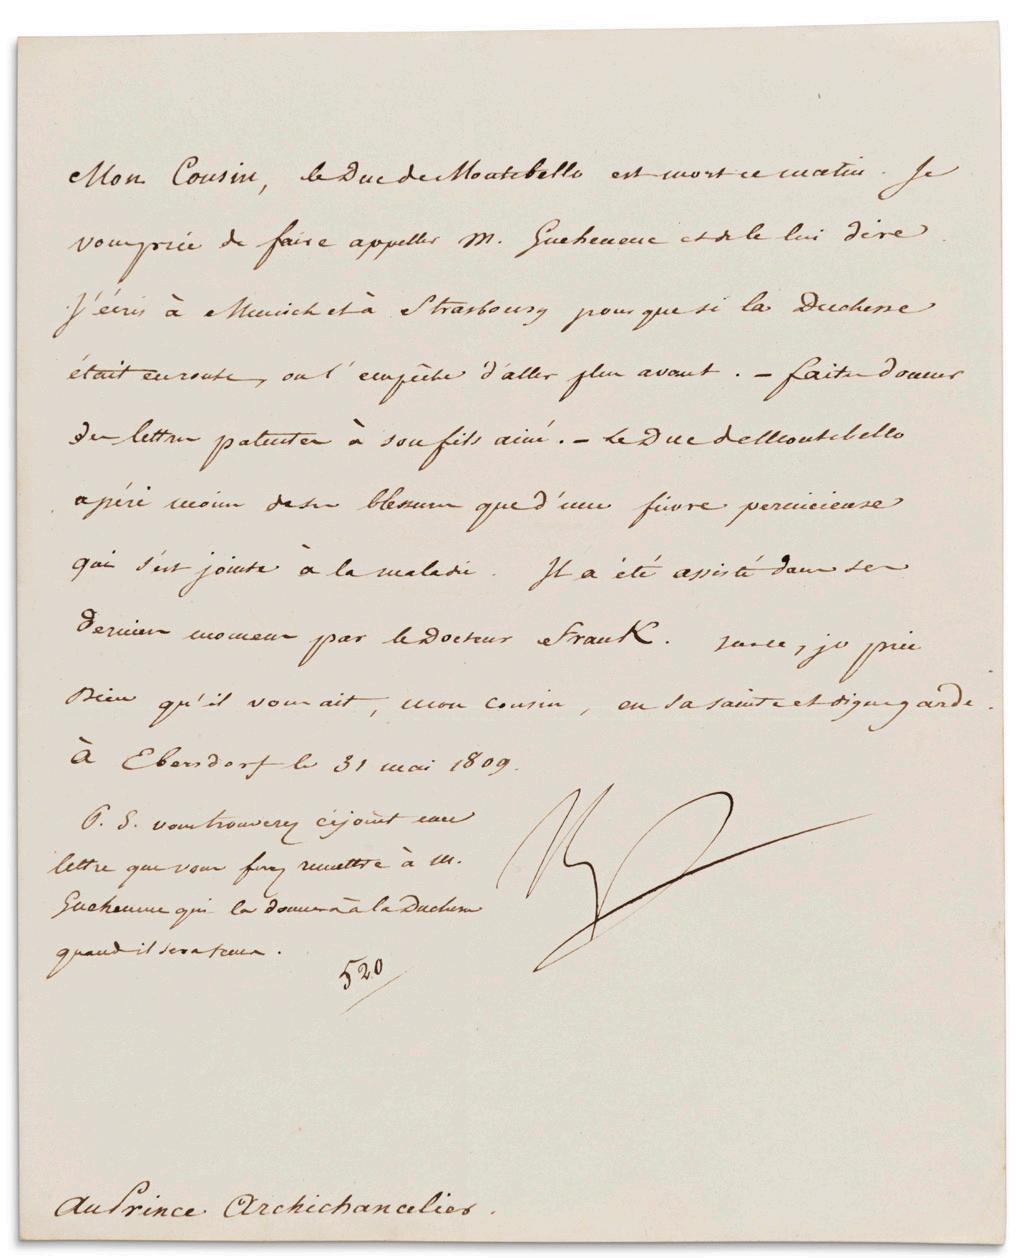 Mon Cousin, le Duc de Montebello est mort ce matin. Je
vous prie de faire appeller M. Gueheneuc et de le lui dire.
J'écris à Munich et à Strasbourg pour que si la Duchesse
était en route, on l'empêche d'aller plus avant. – faites donner
des lettres patentes à son fils ainé. – Le Duc de Montebello
a péri moins de ses blessures que d'une fievre pernicieuse
qui s'est jointe à la maladie. Il a été assisté dans ses
derniers momens par le Docteur Frank. sur ce, je prie
Dieu qu'il vous ait, mon cousin, en sa sainte et digne garde.
à Ebersdorf le 31 mai 1809.
P. S. vous trouverez cijoint une
lettre que vous ferez remettre à M.
Gueheneuc qui la donnera à la Duchesse
quand il sera tems.
520
Au Prince Archichancelier.